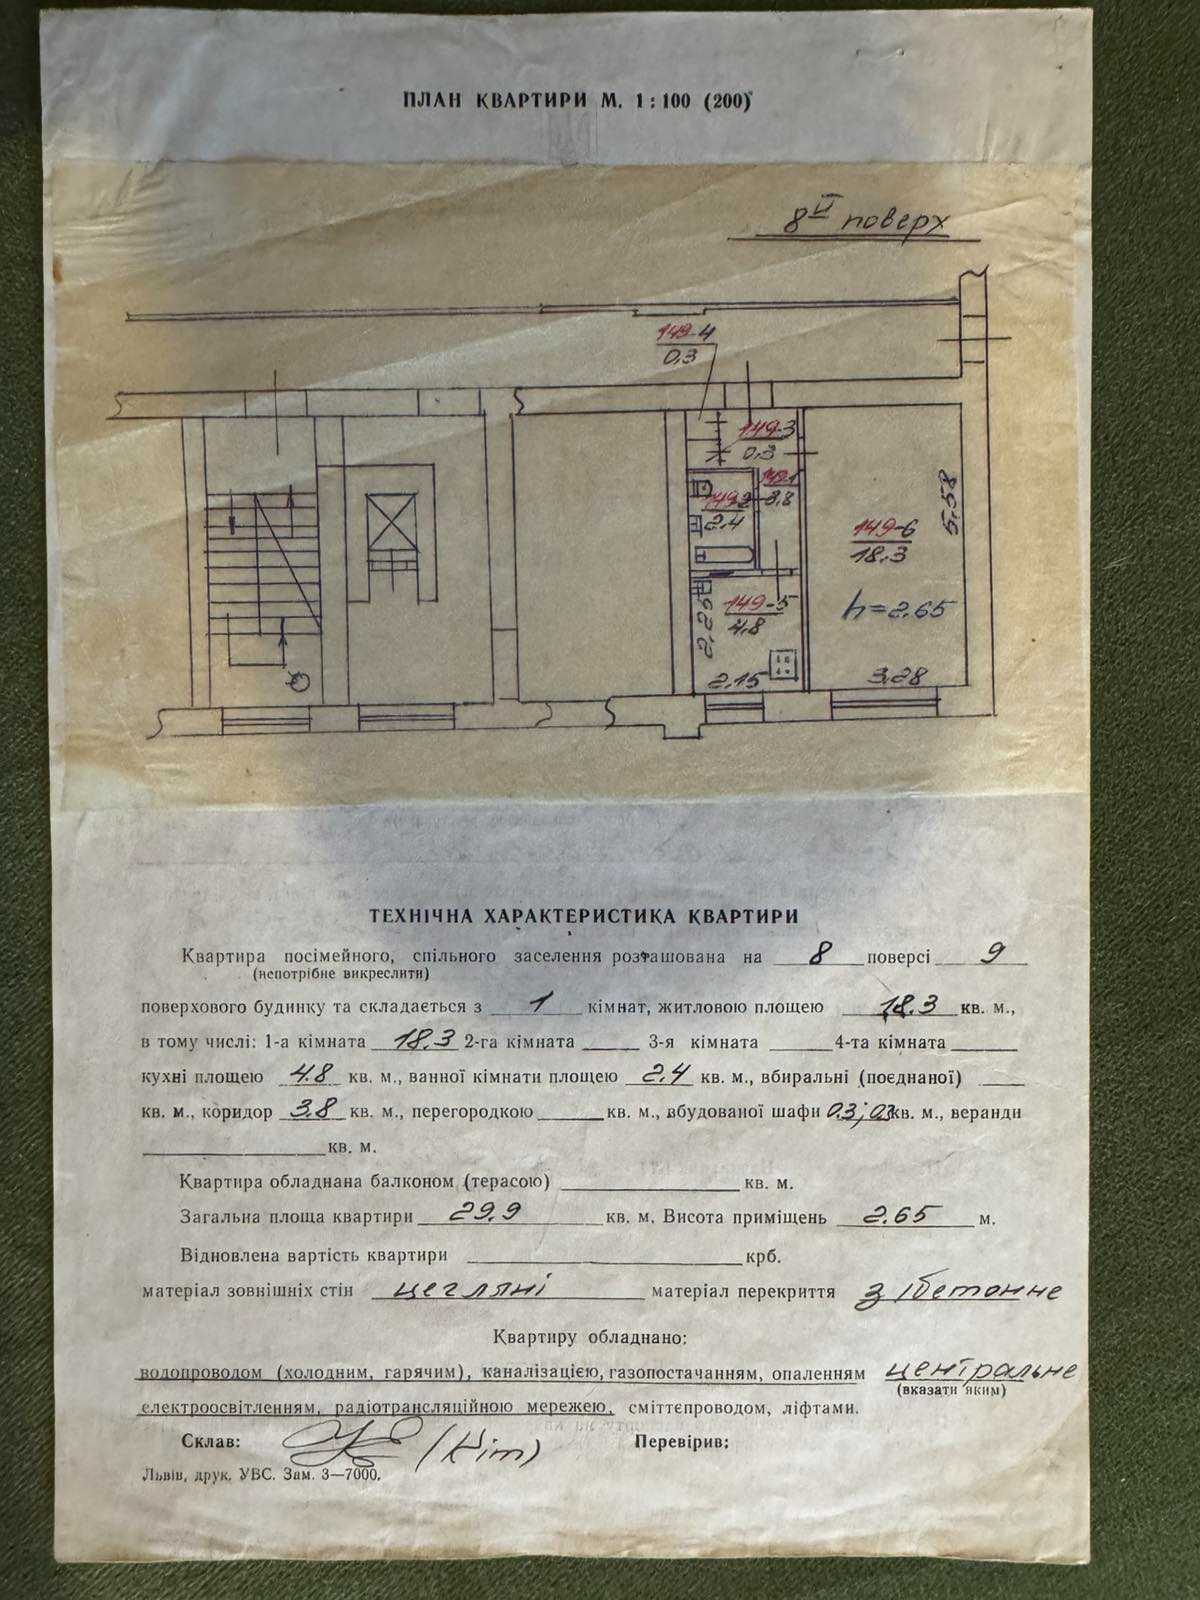 ПЛАН КВАРТИРИ М. 1 : 100 (200)
8й поверх
149-4
0.3
149-3
0.3
149-1
3.8
149-2
2.4
149-6
18.3
5.58
h=2.65
149-5
4.8
2.25
2.15
3.28
ТЕХНІЧНА ХАРАКТЕРИСТИКА КВАРТИРИ
Квартира посімейного, спільного заселення розташована на 8 поверсі 9
(непотрібне викреслити)
поверхового будинку та складається з 1 кімнат, житловою площею 18.3 кв. м.,
в тому числі: 1-а кімната 18.3 2-га кімната 3-я кімната 4-та кімната
кухні площею 4.8 кв. м., ванної кімнати площею 2.4 кв. м., вбиральні (поєднаної)
кв. м., коридор 3.8 кв. м., перегородкою кв. м., вбудованої шафи 0.3; 0.3 кв. м., веранди
кв. м.
Квартира обладнана балконом (терасою) кв. м.
Загальна площа квартири 29.9 кв. м. Висота приміщень 2.65 м.
Відновлена вартість квартири крб.
матеріал зовнішніх стін цегляні матеріал перекриття з/бетонне
Квартиру обладнано:
водопроводом (холодним, гарячим), каналізацією, газопостачанням, опаленням центральне
(вказати яким)
електроосвітленням, радіотрансляційною мережею, сміттєпроводом, ліфтами.
Склав: (Кіт) Перевірив:
Львів, друк. УВС. Зам. 3—7000.